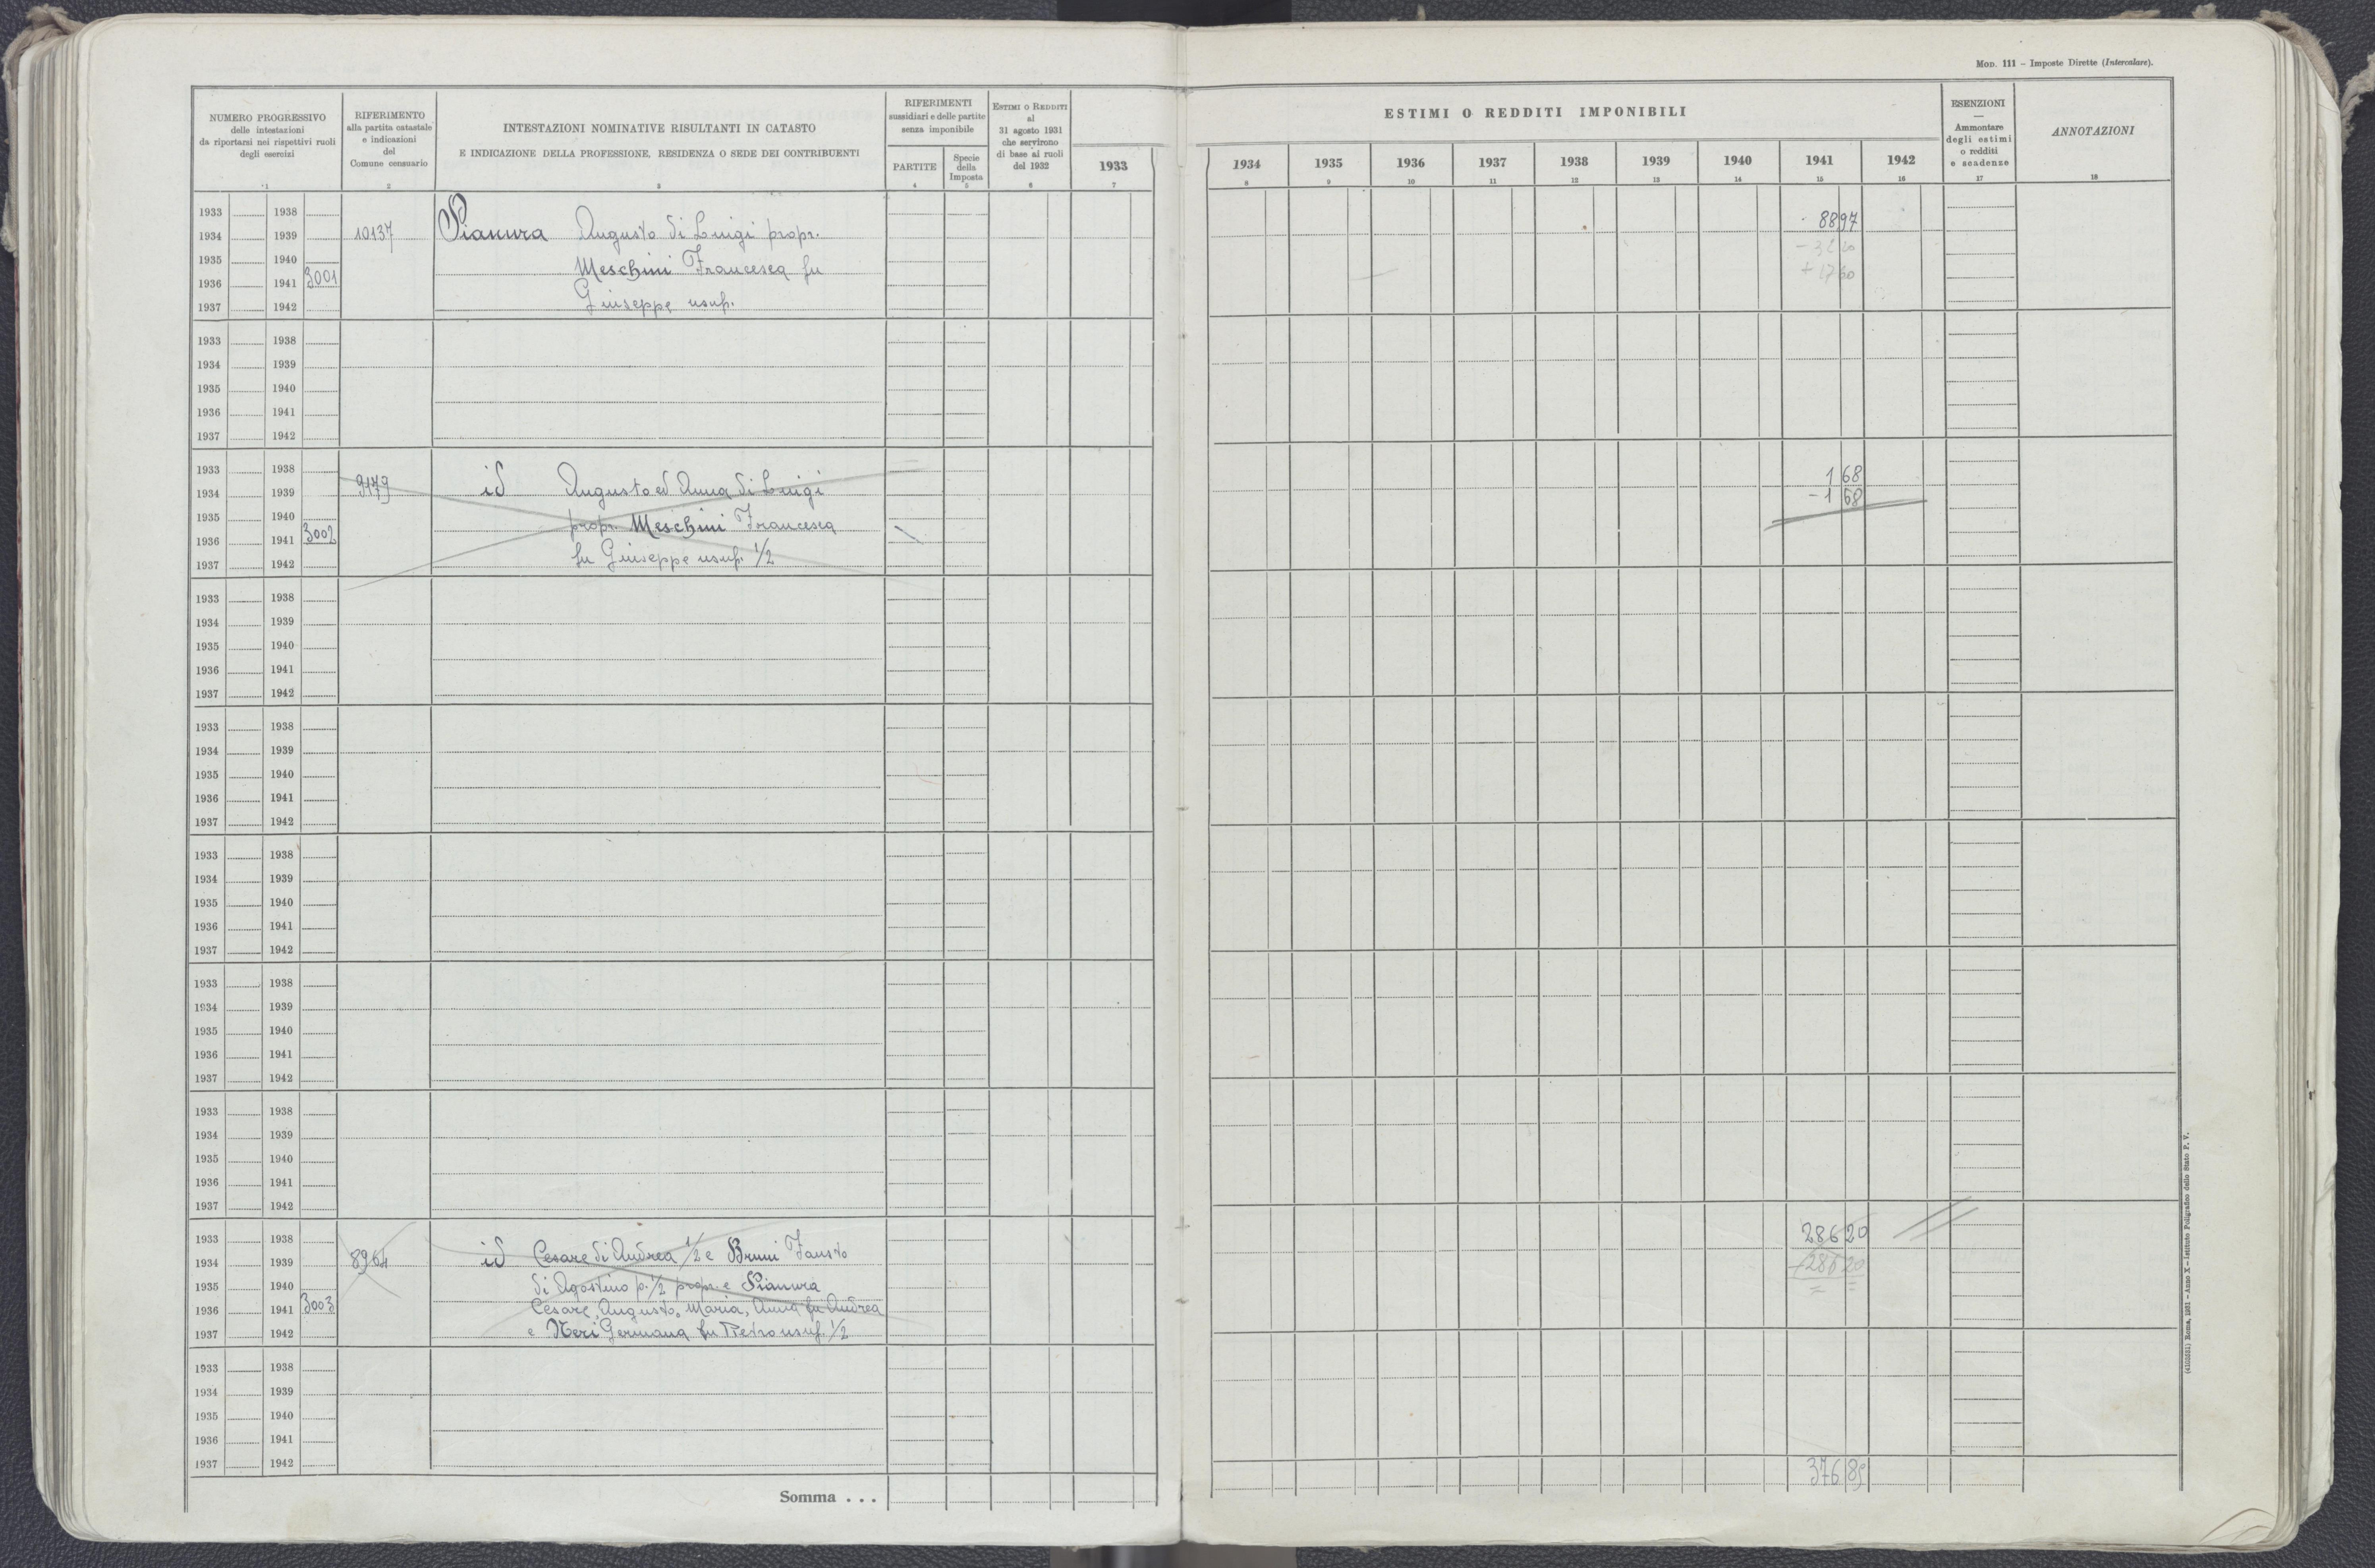 MOD. 111 – Imposte Dirette (Intercalare).
NUMERO PROGRESSIVO
delle intestazioni
da riportarsi nei rispettivi ruoli
degli esercizi
1
RIFERIMENTO
alla partita catastale
e indicazioni
del
Comune censuario
2
INTESTAZIONI NOMINATIVE RISULTANTI IN CATASTO
E INDICAZIONE DELLA PROFESSIONE, RESIDENZA O SEDE DEI CONTRIBUENTI
3
RIFERIMENTI
sussidiari e delle partite
senza imponibile
PARTITE
4
Specie
della
Imposta
5
ESTIMI O REDDITI
al
31 agosto 1931
che servirono
di base ai ruoli
del 1932
6
1933
7
ESTIMI O REDDITI IMPONIBILI
1934 1935 1936 1937 1938 1939 1940 1941 1942
8 9 10 11 12 13 14 15 16
ESENZIONI
—
Ammontare
degli estimi
o redditi
e scadenze
17
ANNOTAZIONI
18
1933 1938
1934 1939 10137 Pianura Augusto di Luigi propr. 8897
1935 1940 Meschini Francesca fu
1936 1941 3001
1937 1942 Giuseppe usuf.
1933 1938
1934 1939
1935 1940
1936 1941
1937 1942
1933 1938 1 68
1934 1939 9179 id Augusto ed Anna di Luigi – 1 68
1935 1940 propr. Meschini Francesca
1936 1941 3002
1937 1942 fu Giuseppe usuf. 1/2
1933 1938
1934 1939
1935 1940
1936 1941
1937 1942
1933 1938
1934 1939
1935 1940
1936 1941
1937 1942
1933 1938
1934 1939
1935 1940
1936 1941
1937 1942
1933 1938
1934 1939
1935 1940
1936 1941
1937 1942
1933 1938
1934 1939
1935 1940
1936 1941
1937 1942
1933 1938 286 20
1934 1939 8964 id Cesare di Andrea 1/2 e Bruni Fausto – 286 20
1935 1940 di Agostino p. 1/2 propr. e Pianura
1936 1941 3003 Cesare, Augusto, Maria, Anna fu Andrea
1937 1942 e Neri Germana fu Pietro usuf. 1/2
1933 1938
1934 1939
1935 1940
1936 1941
1937 1942
Somma . . . 376 85
(4102681) Roma, 1931 – Anno X – Istituto Poligrafico dello Stato P. V.